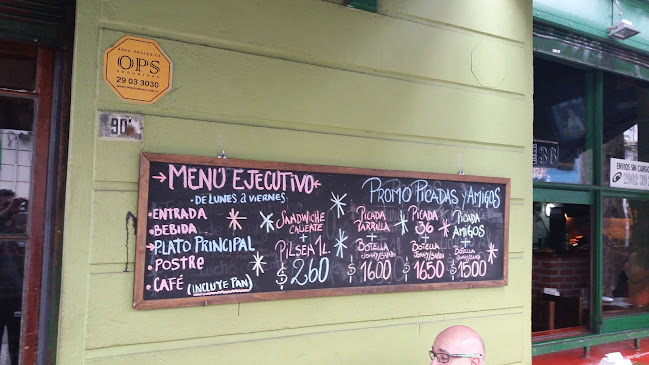 AREA PROTEGIDA
OPS
SEGURIDAD
29 03 3030
90
MENÚ EJECUTIVO
DE LUNES a VIERNES
• ENTRADA
• BEBIDA
• PLATO PRINCIPAL
• POSTRE
• CAFÉ (INCLUYE PAN)
SANDWICHE
CALIENTE
+
PILSEN 1L
$ 260
PROMO PICADAS y AMIGOS
PICADA
PARRILLA
+
BOTELLA
$ 1600
PICADA
36
+
BOTELLA
$ 1650
PICADA
AMIGOS
+
BOTELLA
$ 1500
36
ENVIOS SIN CARGO